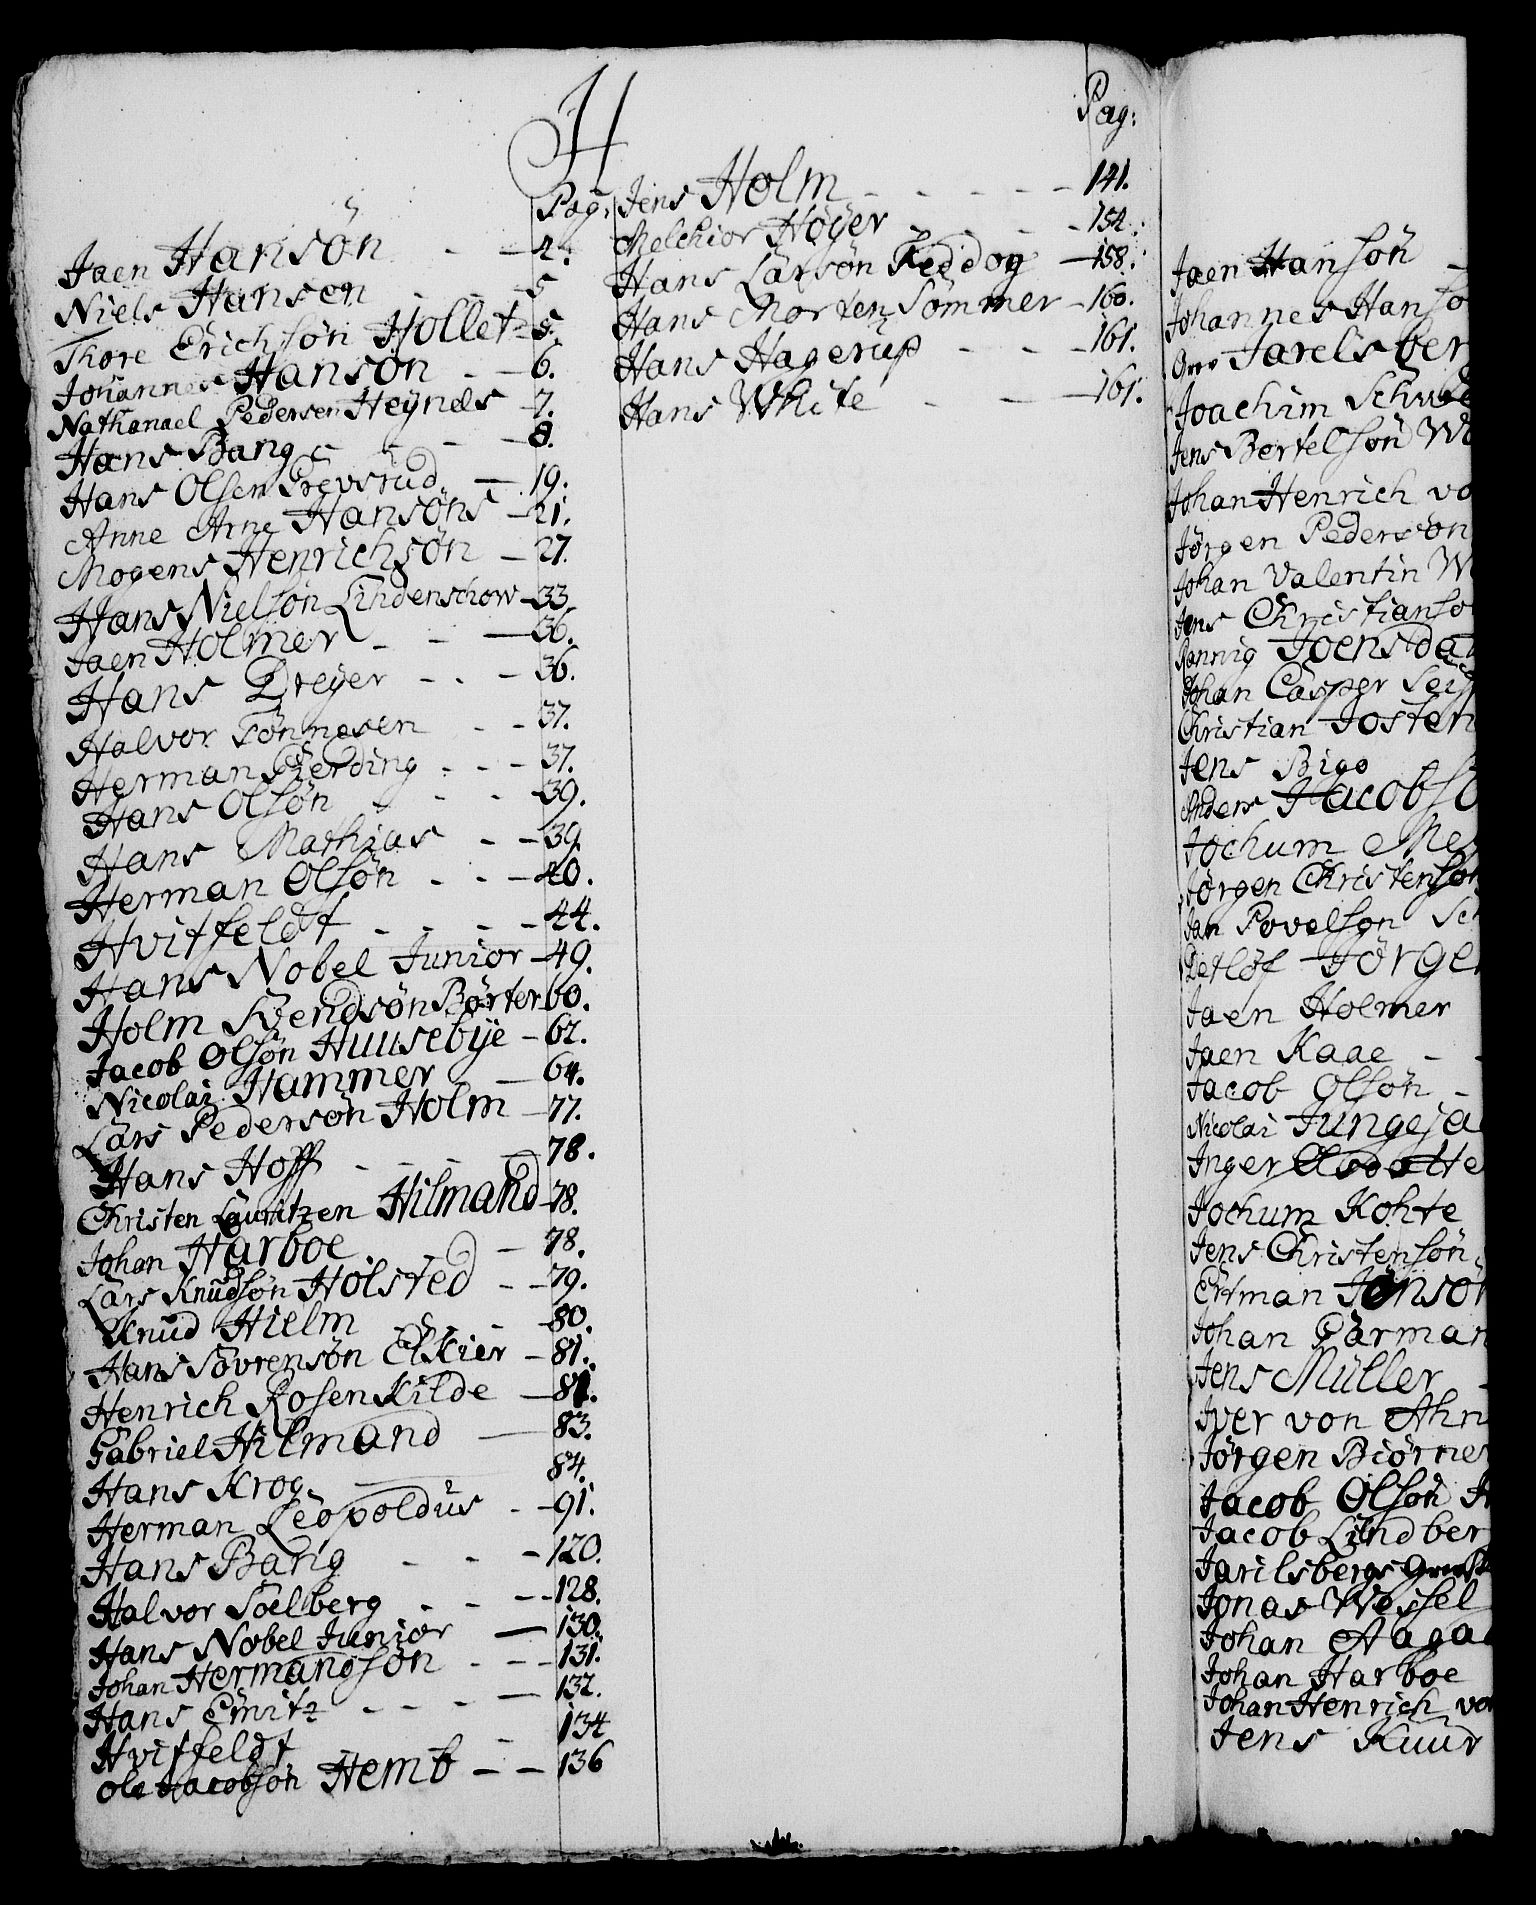 H
Pag:
Jaen Hansön - - 4.
Niels Hansen - - - 5
Thore Erichsön Hollet - 5.
Johannes Hansön - - 6.
Nathanael Pedersen Heÿnels - 7.
Hans Bang - - - 8.
Hans Olsen Prevsrud - 19.
Anne Arne Hansöns - 21.
Mogens Henrichsön - 27.
Hans Nielsön Lindenschow - 33.
Jaen Holmer - - - 36.
Hans Dreÿer - - - 36.
Halvor Tönnesen - - 37.
Herman Gierding - - - 37.
Hans Olsön - - - 39.
Hans Mathias - - 39.
Herman Olsön - - - 40.
Hvitfeldt - - - - 44.
Hans Nobel Junior - 49.
Holm Svendsön Börter 60.
Jacob Olsön Huusebÿe - 62.
Nicolai Hammer - 64.
Lars Pedersön Holm - 77.
Hans Hoff - - - - 78.
Christen Lauritzen Hilmand - 78.
Johan Harboe - - 78.
Lars Knudsön Holsted - - 79.
Knud Hielm - - - - 80.
Hans Sövrensön Elkier - 81.
Henrich Rosenkilde - 81.
Gabriel Hilmand - 83.
Hans Krog - 84.
Herman Leopoldus - - 91.
Hans Bang - - - 120.
Halvor Söelberg - - - 128.
Hans Nobel Junior - 130.
Johan Hermandsön - - - 131.
Hans Emitz - - - - 132.
Hvitfeldt - 134
Ole Jacobsön Hemb - - 136
Pag:
Jens Holm - - - - - 141.
Melchior Höÿer - - - 154.
Hans Larsön Feddog - 158.
Hans Morten Sömmer - 160.
Hans Hagerup - - - 161.
Hans White - - - 161.
Jaen Hansön -
Johannes Hanso
Grev Jarelsber
Joachim Schub
Jens Bertelsön W
Johan Henrich vo
Jörgen Pedersön
Johan Valentin W
Jens Christianso
Rannig Joensda
Johan Casper Sei
Christian Josten
Jens Bigo
Anders Jacobso
Jochum Me
Jörgen Christensön
Jan Povelsøn Sc
Detløf Jörge
Jaen Holmer
Jaen Kaae - -
Jacob Olsön -
Nicolai Jungeja
Inger
Jochum Kohte
Jens Christensön
Ertman Jönsön
Johan Garman
Jens Müller -
Iver von Ahn
Jörgen Biörne
Jacob Olsön H
Jacob Lindber
Jarilsbergs Grevsk
Jonas Wessel
Johan Aaga
Johan Harboe
Johan Henrich vo
Jens Kuur